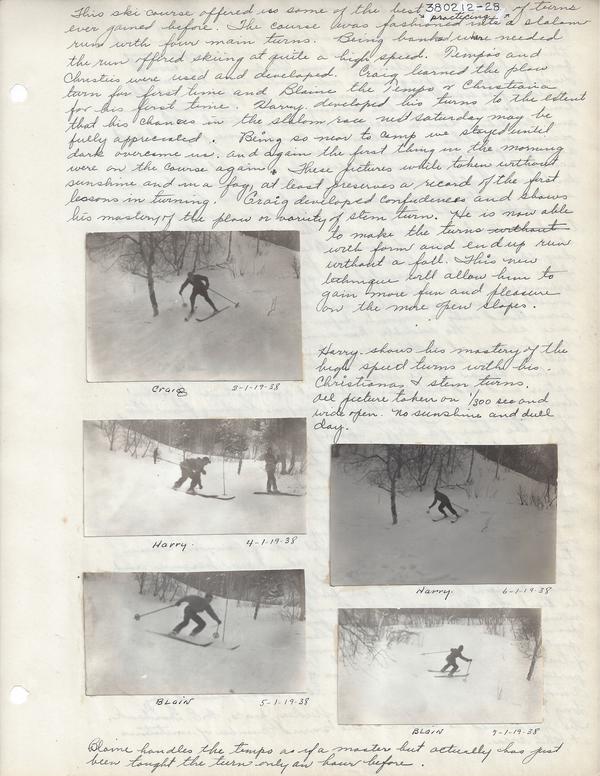 This ski course offered us some of the best practicing of turns
380212-28
ever gained before. The course was fashioned into a slalom
run with four main turns. Being banked were needed
the run offered skiing at quite a high speed. Tempos and
Christies were used and developed. Craig learned the plow
turn for first time and Blaine the Tempo & Christiania
for his first time. Harry developed his turns to the extent
that his chances in the slalom race next Saturday may be
fully appreciated. Being so near to camp we stayed until
dark overcome us, and again the first thing in the morning
were on the course again. These pictures while taken without
sunshine and in a fog, at least preserves a record of the first
lessons in turning. Craig developed confidences and shows
his mastery of the plow or variety of stem turn. He is now able
to make the turns without
with form and end up run
without a fall. This new
technique will allow him to
gain more fun and pleasure
on the more open slopes.
Harry shows his mastery of the
high speed turns with his
Christianas & stem turns.
All picture taken on 1/300 second
wide open. No sunshine and dull
day.
Craig 3-1-19-38
Harry. 4-1-19-38
Harry. 6-1-19-38
Blain 5-1-19-38
Blain 9-1-19-38
Blaine handles the tempo as if a master but actually has just
been taught the turn only an hour before.